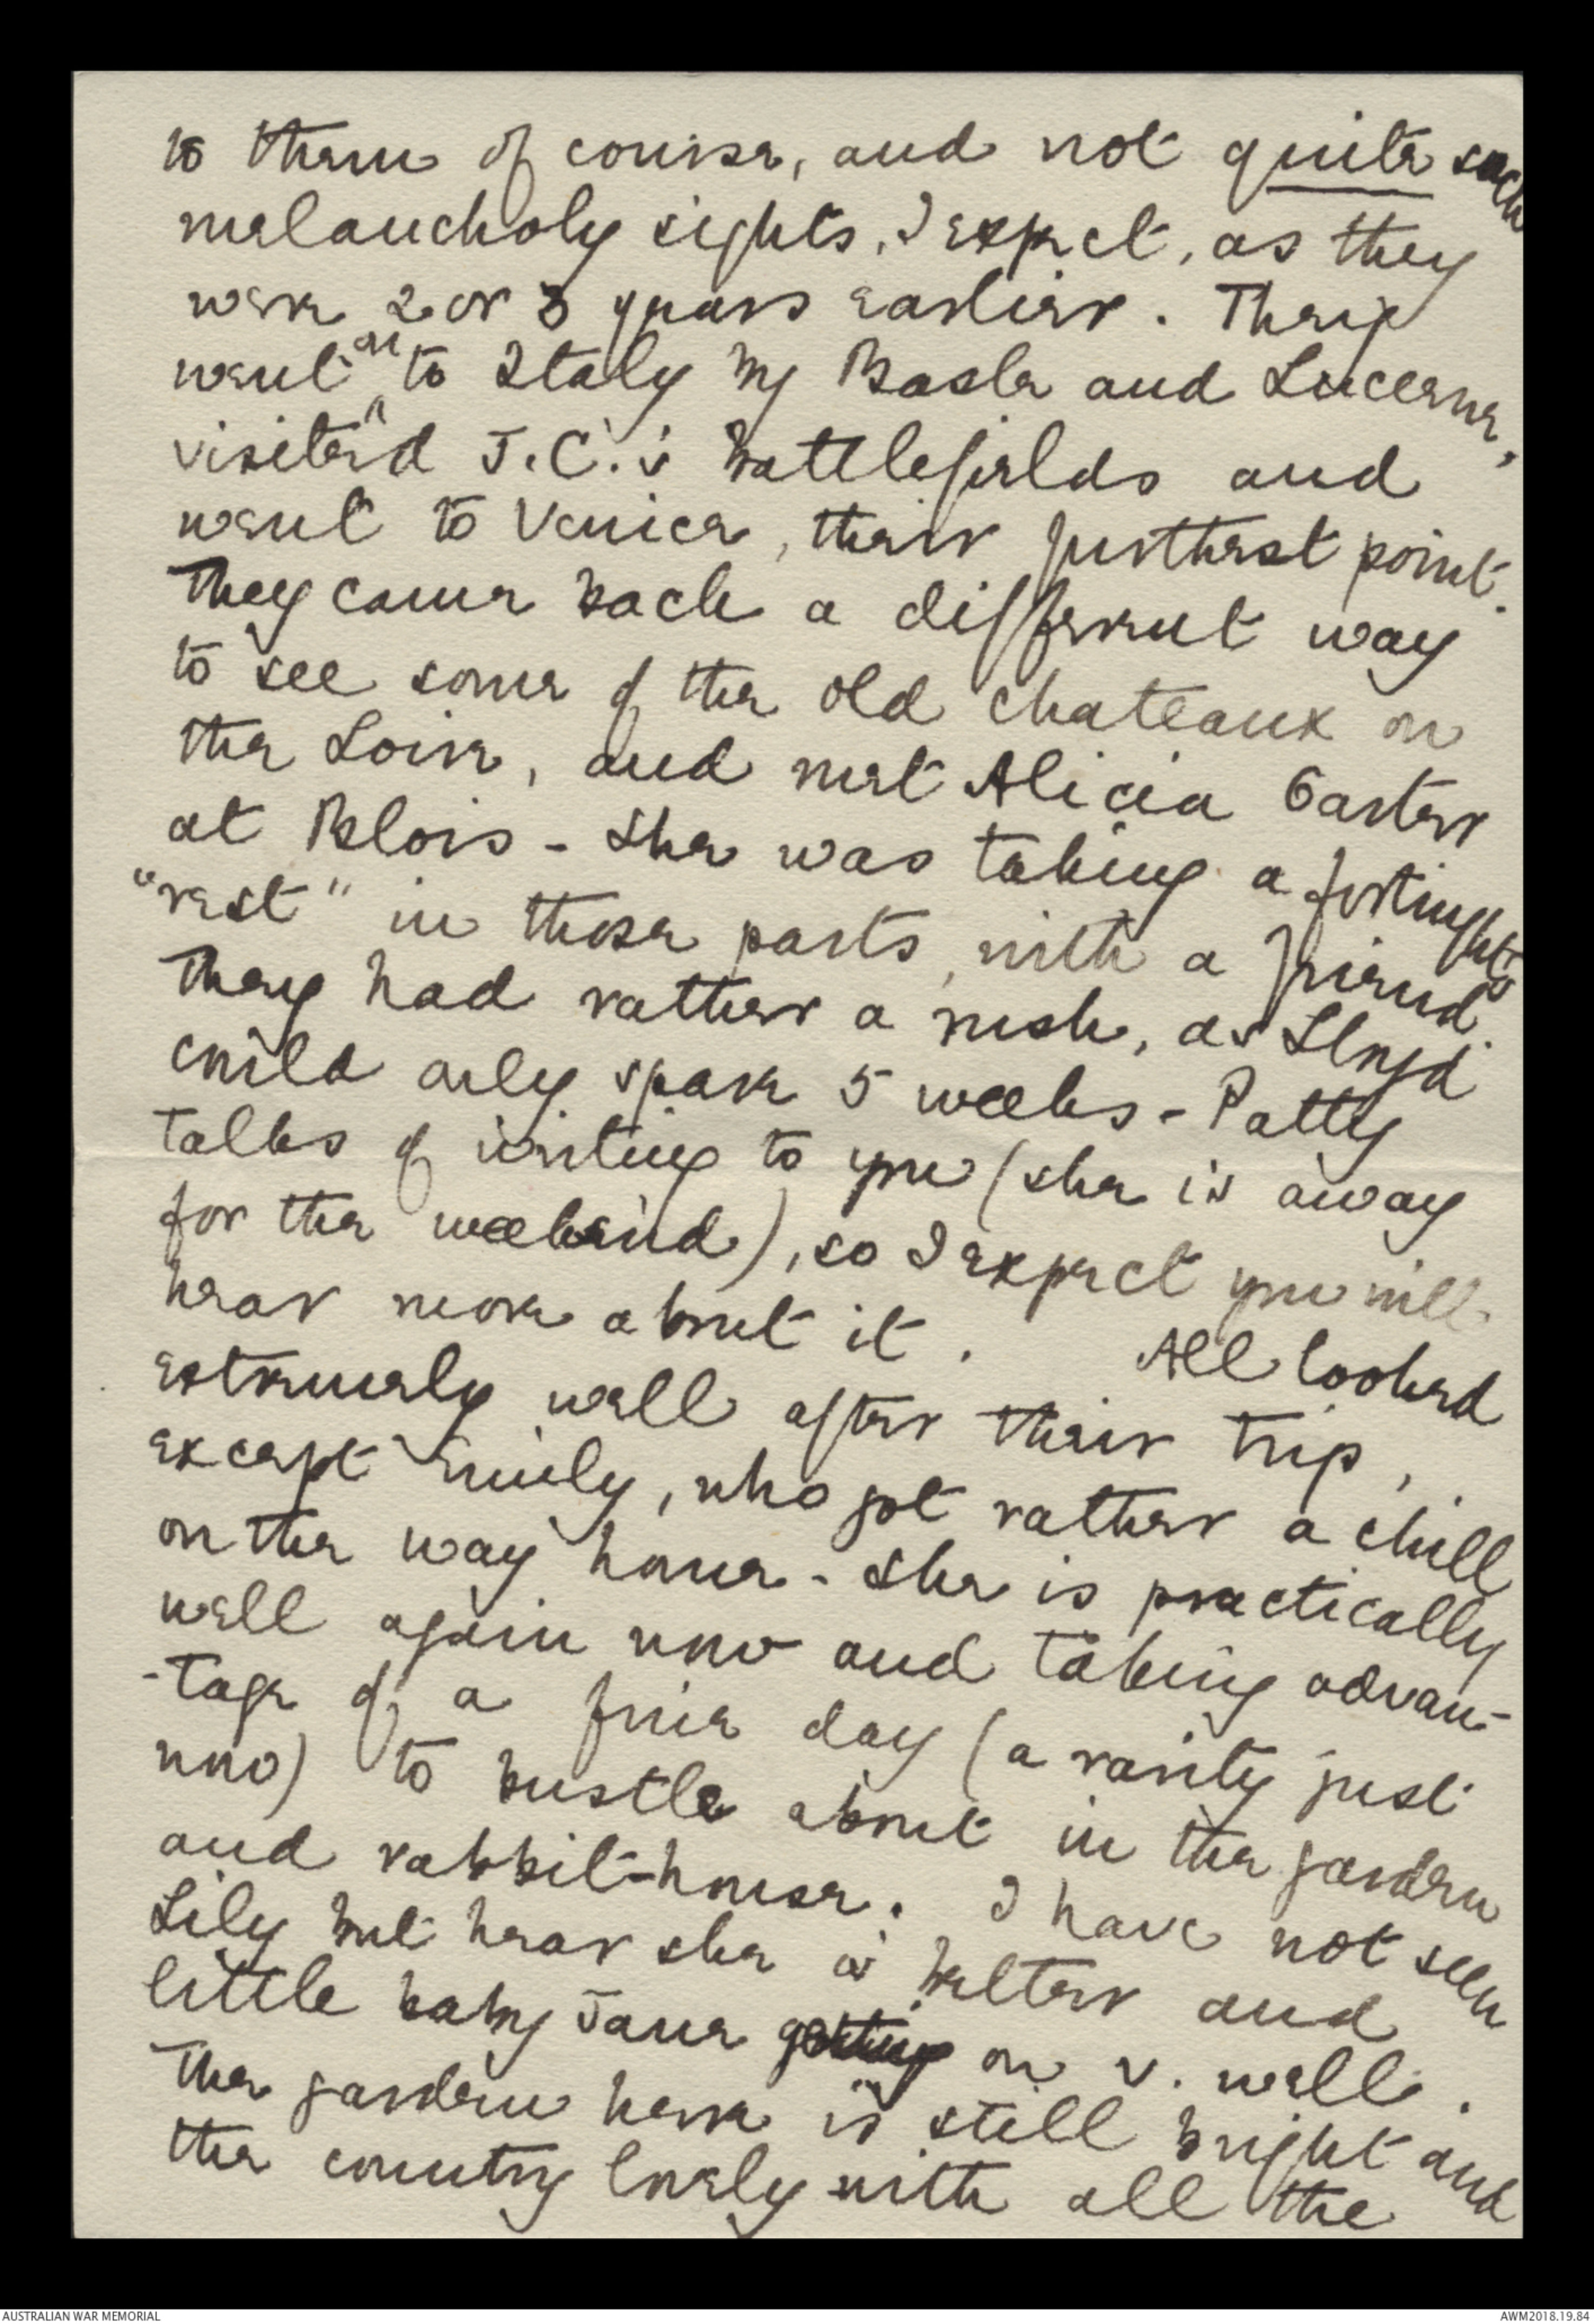 to them of course, and not quite such
melancholy sights, I expect, as they
were 2 or 3 years earlier. They
went on to Italy by Basle and Lucerne,
visited J.C.'s battlefields and
went to Venice, their furthest point.
They came back a different way
to see some of the old chateaux on
the Loire, and met Alicia
at Blois - she was taking a fortnight's
"rest" in those parts, with a friend.
They had rather a rush, as Lloyd
could only spare 5 weeks - Patty
talks of writing to you (she is away
for the weekend), so I expect you will
hear more about it. All looked
extremely well after their trip,
except Emily, who got rather a chill
on the way home - she is practically
well again now and taking advan-
-tage of a fine day (a rarity just
now) to bustle about in the garden
and rabbit-house. I have not seen
Lily but hear she is better and
little baby Jane getting on v. well.
The garden here is still bright and
the country lovely with all the
AUSTRALIAN WAR MEMORIAL
AWM2018.19.84